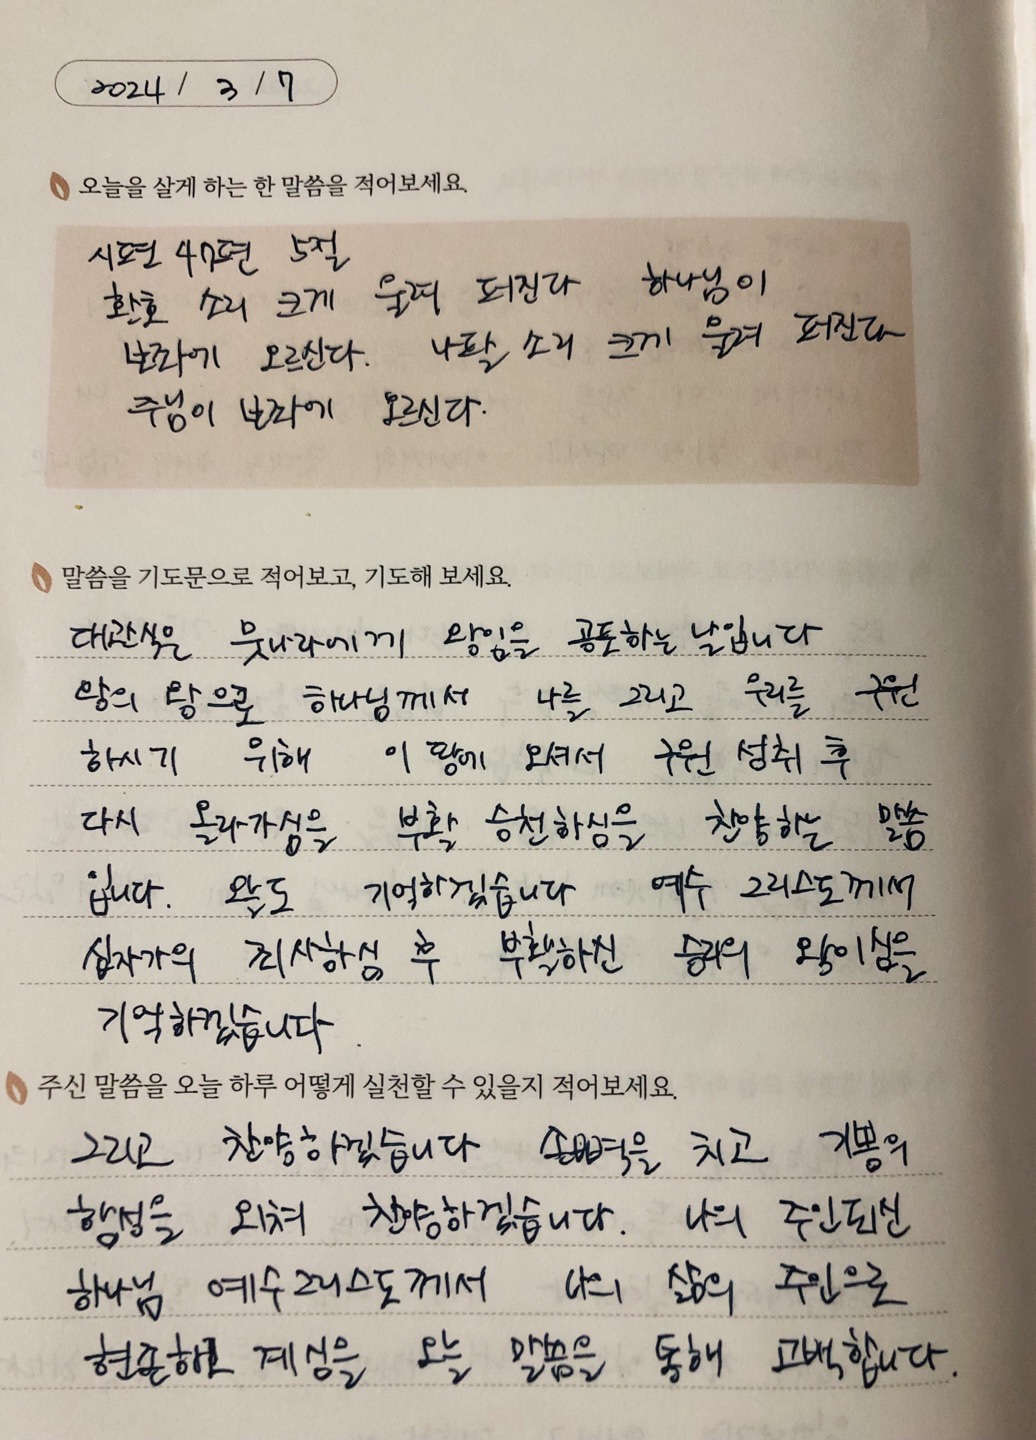 2024 / 3 / 7
오늘을 살게 하는 한 말씀을 적어보세요.
시편 47편 5절
환호 소리 크게 울려 퍼진다 하나님이
보좌에 오르신다. 나팔 소리 크게 울려 퍼진다
주님이 보좌에 오르신다.
말씀을 기도문으로 적어보고, 기도해 보세요.
대관식은 뭇나라에게 왕임을 공포하는 날입니다
왕의 왕으로 하나님께서 나를 그리고 우리를 구원
하시기 위해 이 땅에 오셔서 구원 성취 후
다시 올라가심을 부활 승천하심을 찬양하는 말씀
입니다. 오늘도 기억하겠습니다 예수 그리스도께서
십자가의 죄사하심 후 부활하신 승리의 왕이심을
기억하겠습니다.
주신 말씀을 오늘 하루 어떻게 실천할 수 있을지 적어보세요.
그리고 찬양하겠습니다 손뼉을 치고 기쁨의
함성을 외쳐 찬양하겠습니다. 나의 주인되신
하나님 예수그리스도께서 나의 삶의 주인으로
현존해 계심을 오늘 말씀을 통해 고백합니다.